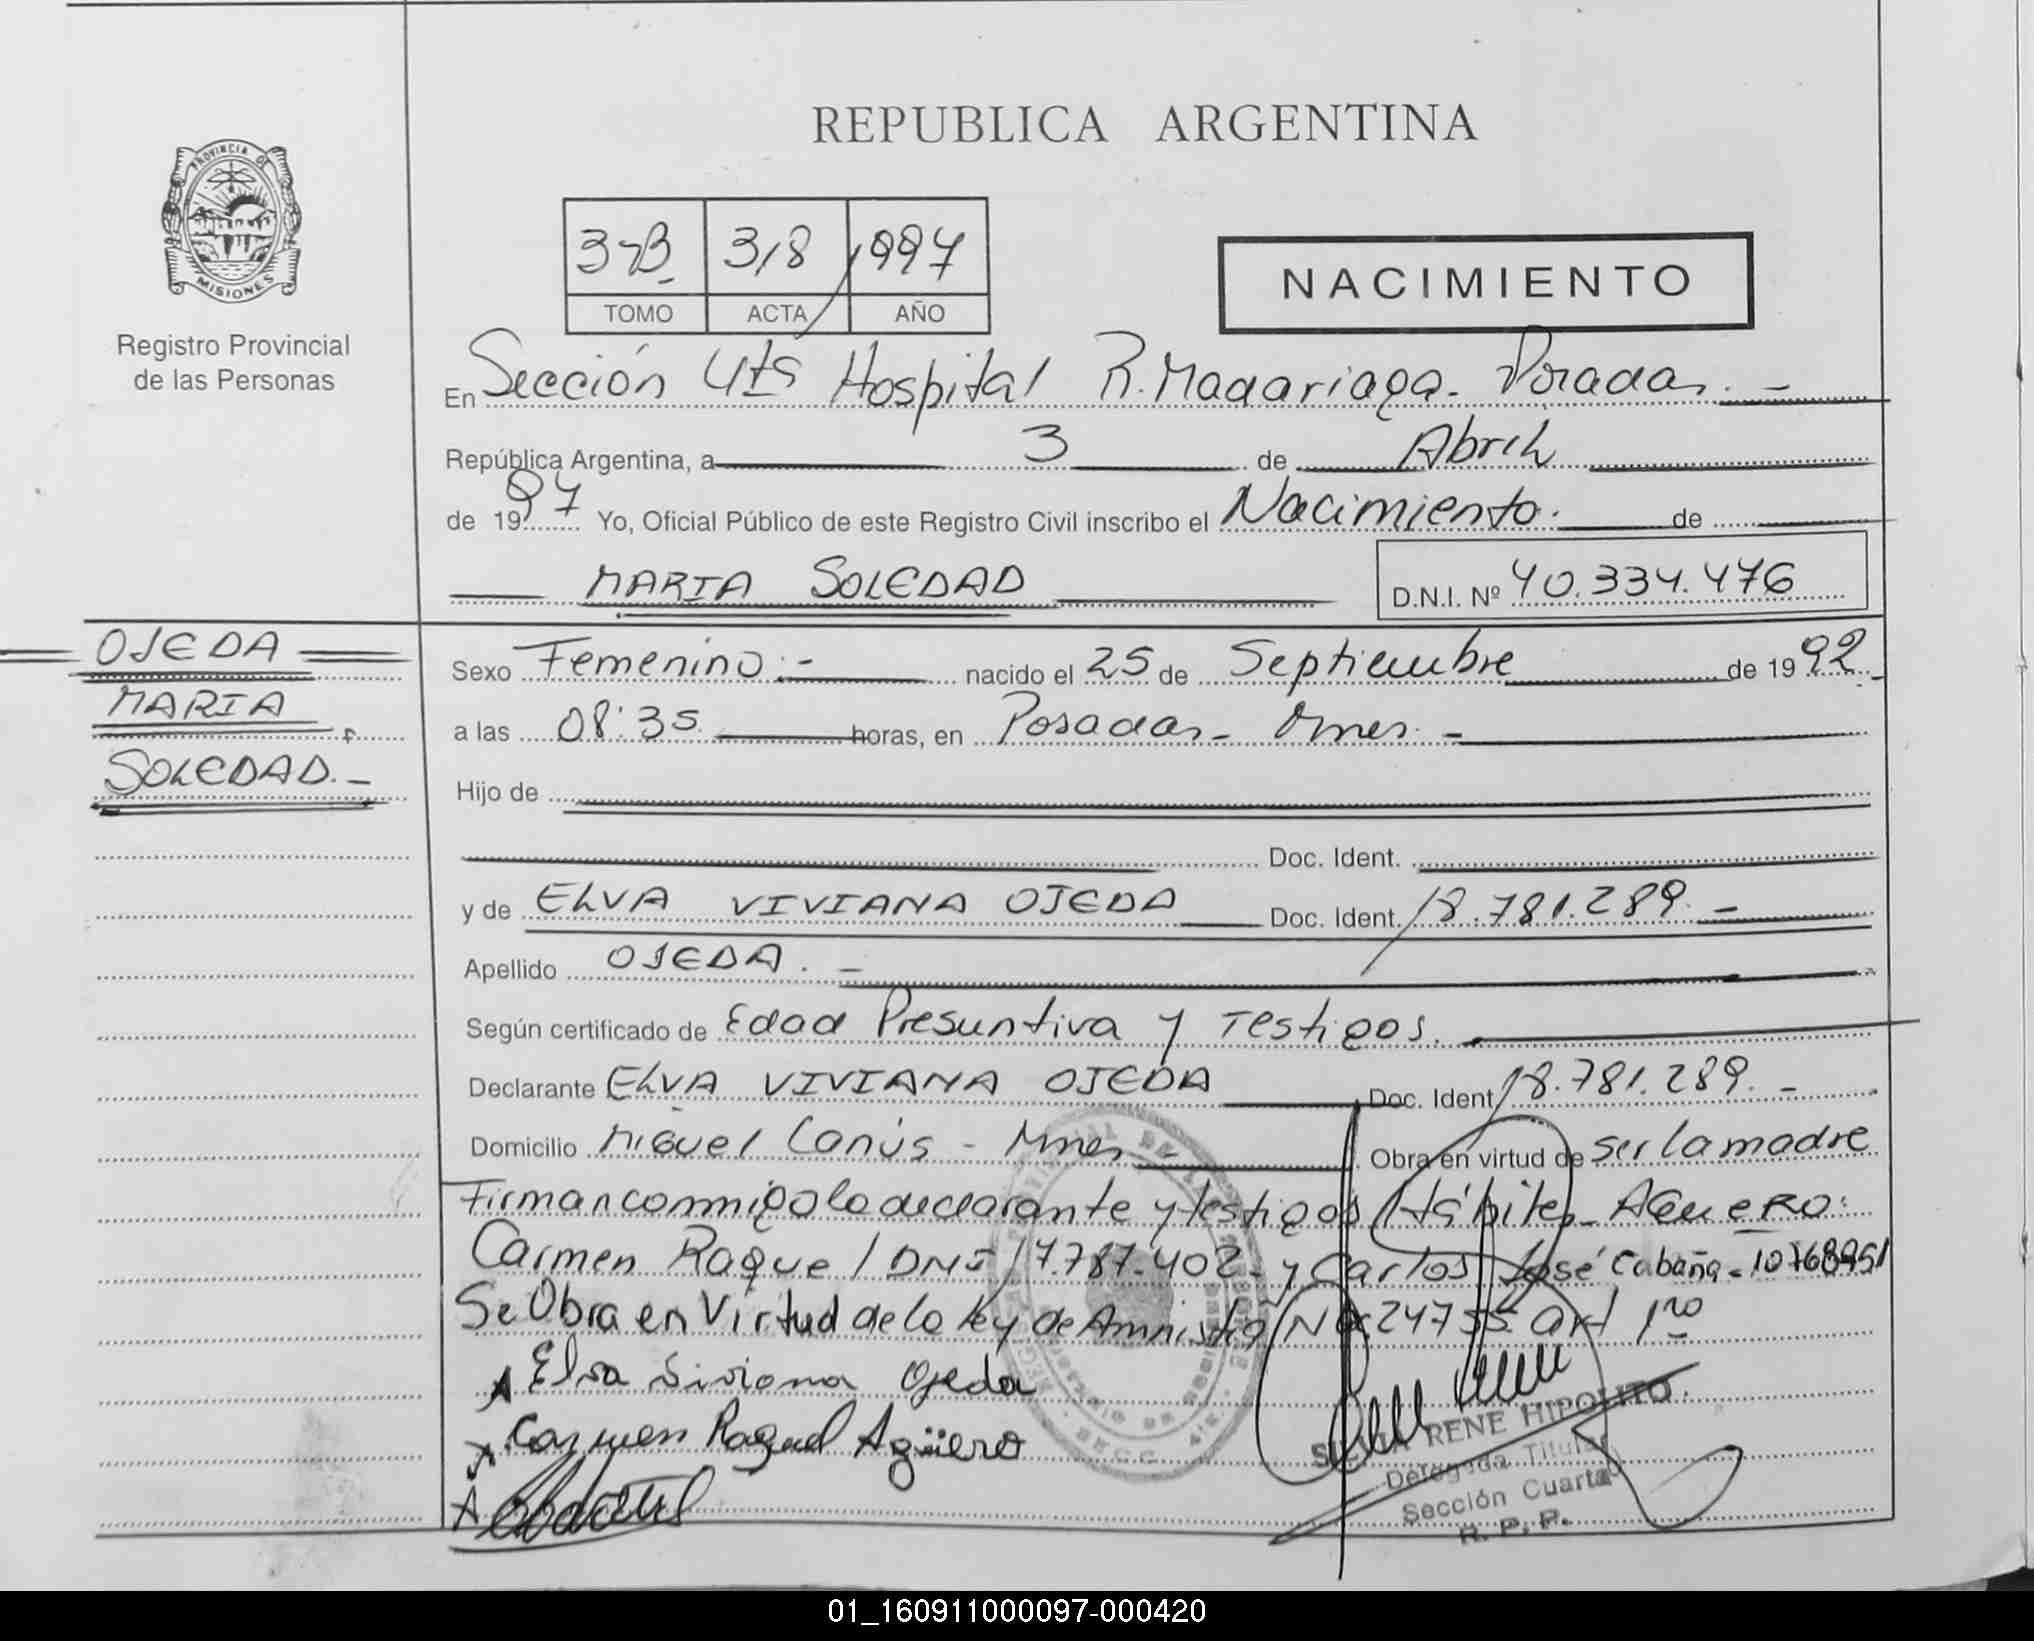 REPUBLICA ARGENTINA
PROVINCIA DE
MISIONES
Registro Provincial
de las Personas
3-B 318 1997
TOMO ACTA AÑO
NACIMIENTO
En Sección 4ta Hospital R. Madariaga - Posadas. -
República Argentina, a 3 de Abril
de 1997 Yo, Oficial Público de este Registro Civil inscribo el Nacimiento. de
MARIA SOLEDAD
D.N.I. Nº 40.334.476
OJEDA
MARIA
SOLEDAD. -
Sexo Femenino. - nacido el 25 de Septiembre de 1992 -
a las 08:35 horas, en Posadas - Mnes. -
Hijo de
Doc. Ident.
y de ELVA VIVIANA OJEDA Doc. Ident. 18.781.289. -
Apellido OJEDA. -
Según certificado de Edad Presuntiva y Testigos.
Declarante ELVA VIVIANA OJEDA Doc. Ident 18.781.289. -
Domicilio Miguel Lanús - Mnes - Obra en virtud de ser la madre
Firman conmigo la declarante y testigos Hábiles - AGUERO:
Carmen Raquel DNI 17.787.402 - y Carlos José Cabaña - 10768951
Se Obra en Virtud de la Ley de Amnistia Nº 24755 art 1ro
Elva Viviana Ojeda
Carmen Raquel Agüero
RENE HIPOLITO
Delegada Titular
Sección Cuarta
R. P. P.
01_160911000097-000420